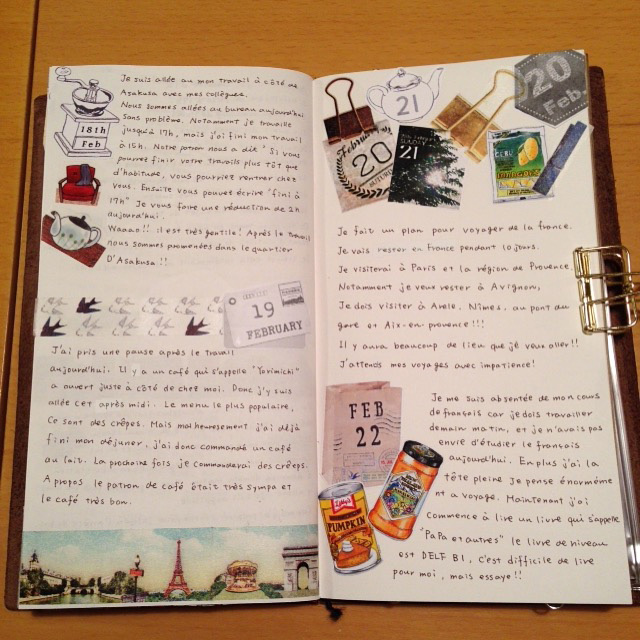 18th
Feb
Je suis allée au mon travail à côté de
Asakusa avec mes collègues.
Nous sommes allées au bureau aujourd'hui
sans problème. Notament je travaille
jusqu'à 17h, mais j'ai fini mon travail
à 15h. Notre patron nous a dit "Si vous
pourrez finir votre travails plus tôt que
d'habitude, vous pourriez rentrer chez
vous. Ensuite vous pouvez écrire "fini à
17h" Je vous faire une réduction de 2h
aujourd'hui.
Waaao!! il est très gentile! Après le travail
nous sommes promenées dans le quartier
D'Asakusa!!
19
FEBRUARY
J'ai pris une pause après le travail
aujourd'hui. Il y a un café qui s'appelle "Yorimichi"
a ouvert juste à côté de chez moi. Donc j'y suis
allée cet après midi. Le menu le plus populaire,
Ce sont des crêpes. Mais malheuresement j'ai déjà
fini mon déjeuner, j'ai donc commandé un café
au lait. La prochaine fois je commanderai des crêpes.
A propos le patron de café était très sympa et
le café très bon.
21
20
Feb.
February
20
SUNDAY
21
Je fait un plan pour voyager de la france.
Je vais rester en France pendant 10 jours.
Je visiterai à Paris et la région de Provence.
Notamment je veux rester à Avignon,
Je dois visiter à Arele, Nîmes, au pont du
gare et Aix-en-provence!!!
Il y aura beaucoup de lieu que je veux aller!!
J'attends mes voyages avec impatience!
FEB
22
Je me suis absentée de mon cours
de français car je dois travailler
demain matin, et je n'avais pas
envie d'étudier le français
aujourd'hui. En plus j'ai la
tête pleine Je pense énormeme
nt a voyage. Maintenant j'ai
commencé à lire un livre qui s'appelle
"Papa et autres" le livre de niveau
est DELF B1, C'est difficile de lire
pour moi, mais essaye!!
Libby's
PUMPKIN